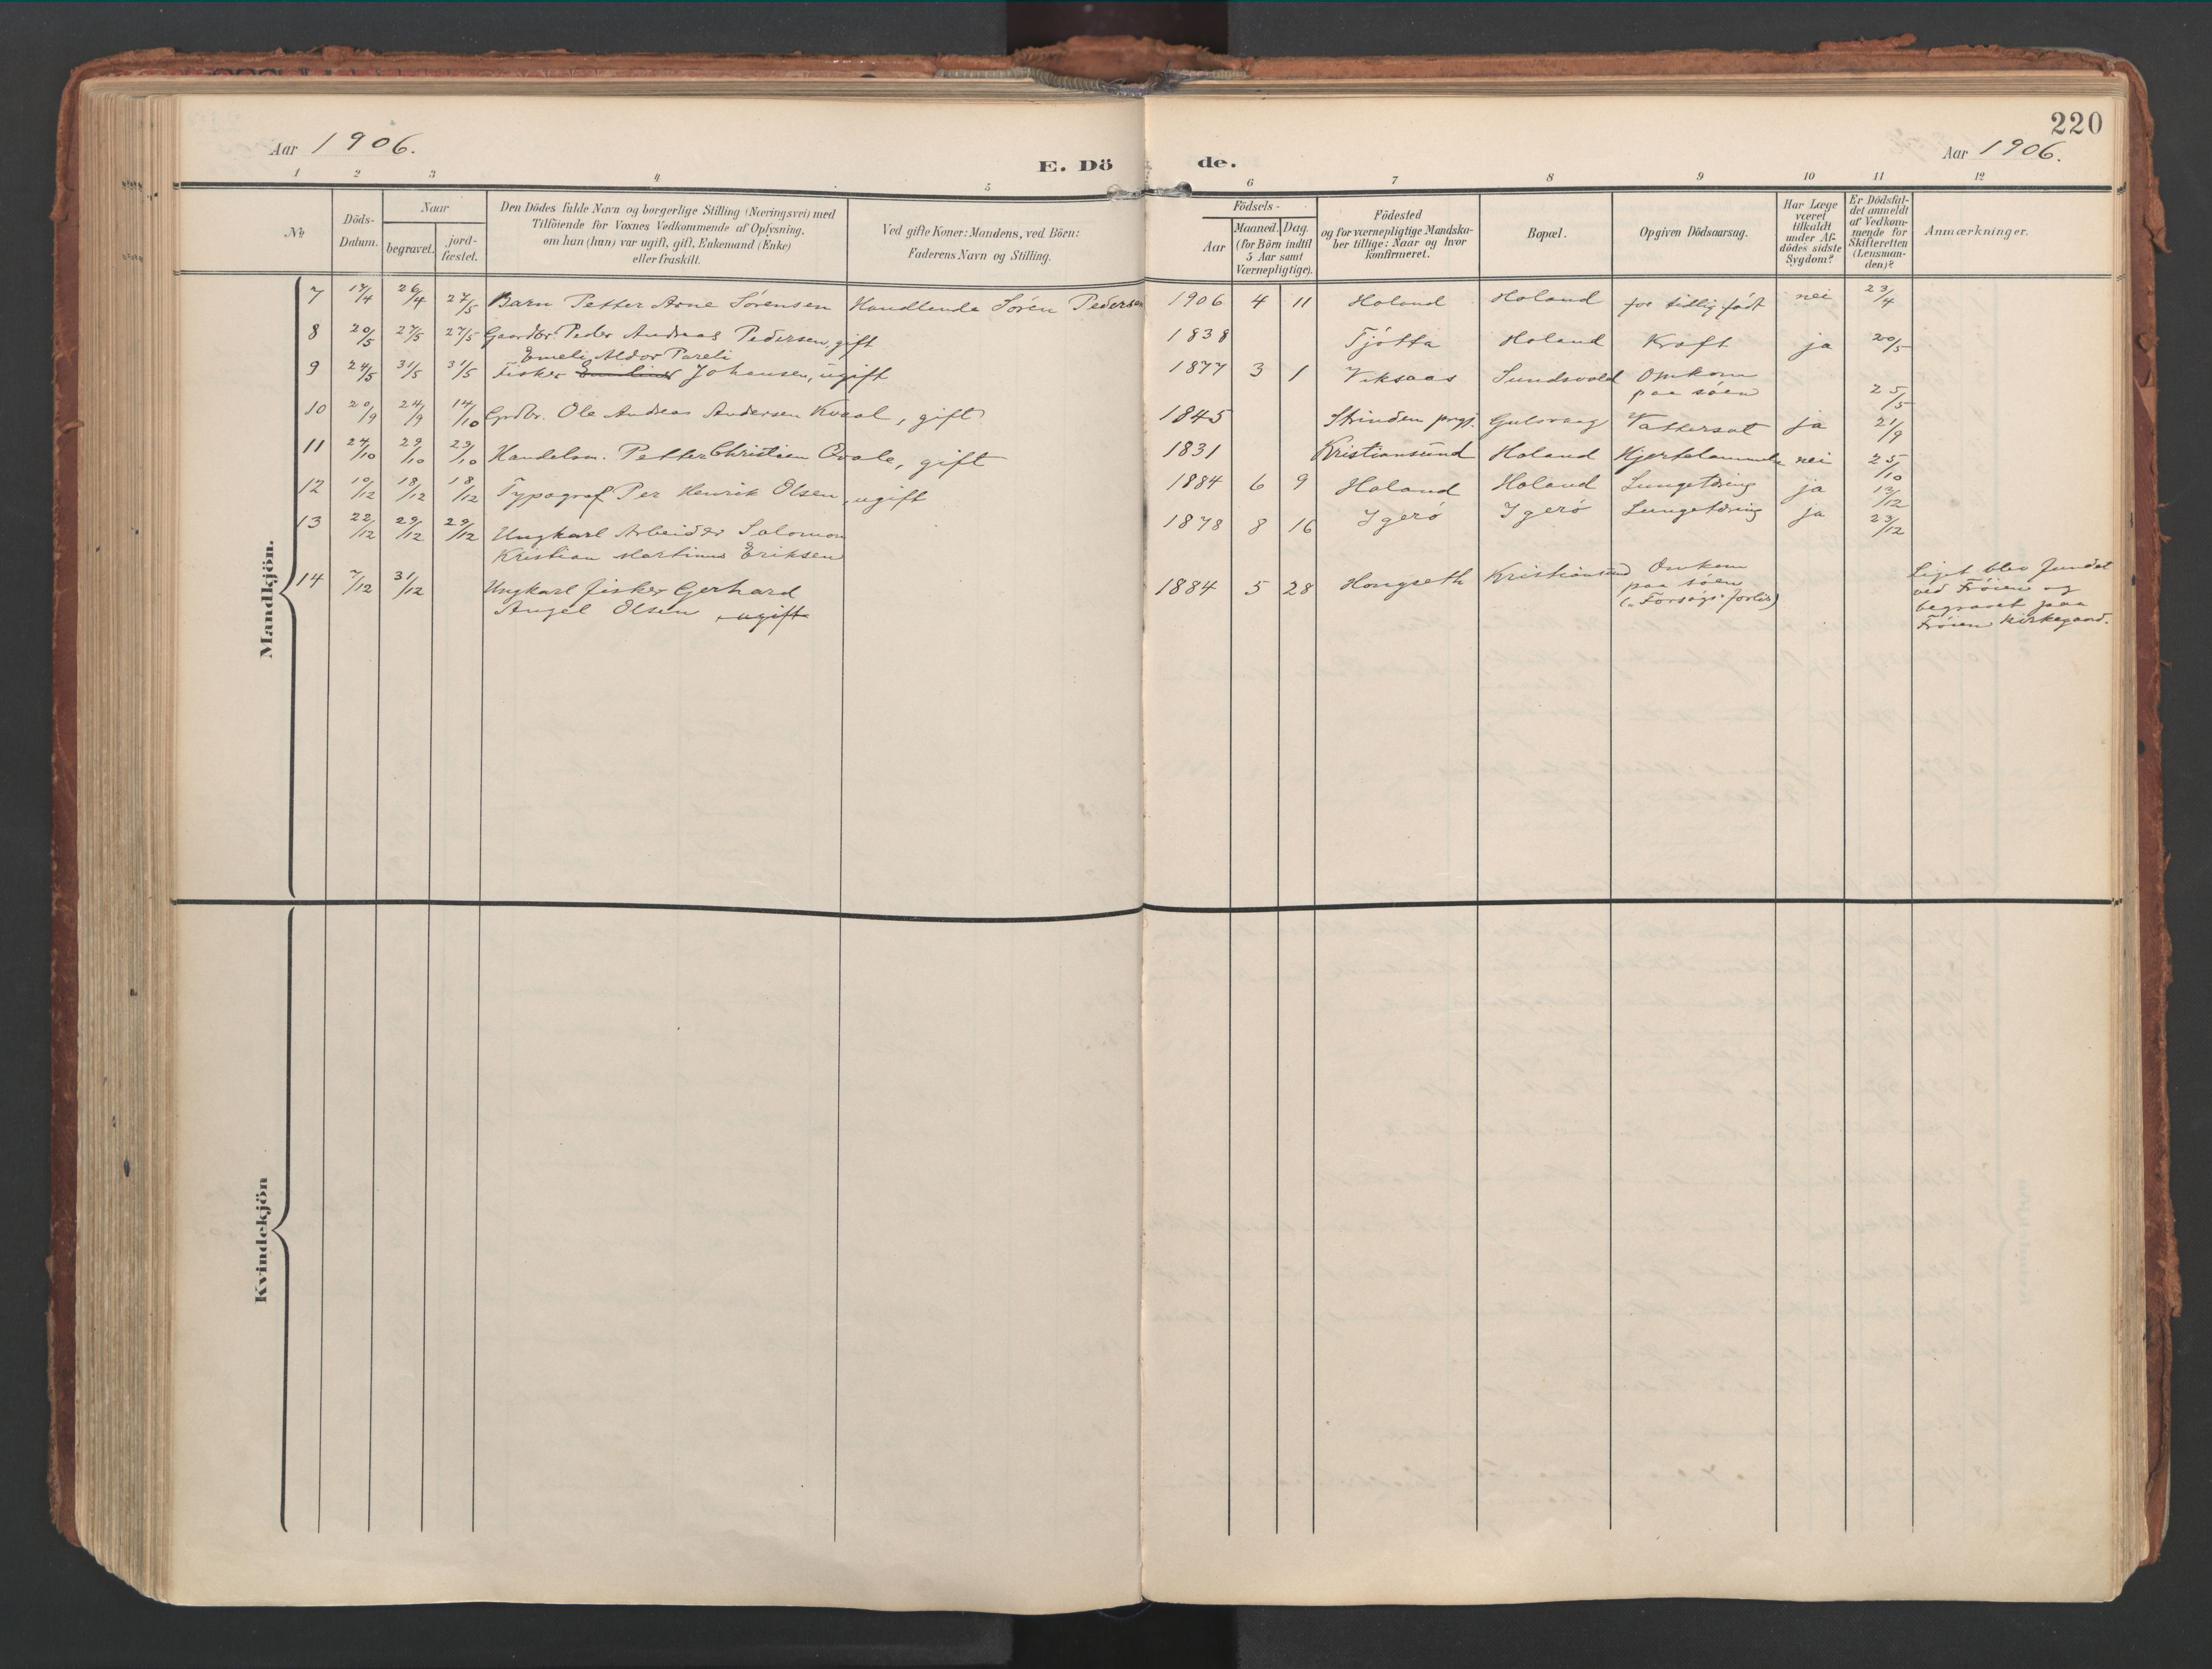 220
Aar 1906.
E. Dö de.
Aar 1906.
1 2 3 4 5 6 7 8 9 10 11 12
No.
Döds-Datum.
Naar
begravet.
jord-fæstet.
Den Dödes fulde Navn og borgerlige Stilling (Næringsvei) med
Tilföiende for Voxnes Vedkommende af Oplysning,
om han (hun) var ugift, gift, Enkemand (Enke)
eller fraskilt.
Ved gifte Koner: Mandens, ved Börn:
Faderens Navn og Stilling.
Födsels-
Aar
Maaned. Dag.
(for Börn indtil
5 Aar samt
Værnepligtige).
Födested
og for værnepligtige Mandska-
ber tillige: Naar og hvor
konfirmeret.
Bopæl.
Opgiven Dödsaarsag.
Har Læge
været
tilkaldt
under Af-
dödes sidste
Sygdom?
Er Dödsfal-
det anmeldt
af Vedkom-
mende for
Skifteretten
(Lensman-
den)?
Anmærkninger.
Mandkjön.
7 17/4 26/4 27/5 Barn Petter Arne Sörensen Handlende Sören Pedersen 1906 4 11 Holand Holand for tidlig födt nei 23/4
8 20/5 27/5 27/5 Gaardbr. Peder Andreas Pedersen, gift 1838 Tjötta Holand Kræft ja 20/5
Emeli Aldor Pareli
9 24/5 31/5 31/5 Fisker Johansen, ugift 1877 3 1 Viksaas Sundsvold Omkom
paa söen 25/5
10 20/9 24/9 14/10 Grdbr. Ole Andreas Andersen Kvaal, gift 1845 Strinden prgj. Gulsvaag Vattersot ja 21/9
11 24/10 29/10 29/10 Handelsm. Petter Christian Qvale, gift 1831 Kristiansund Holand Hjertelammelse nei 25/10
12 10/12 18/12 18/12 Typograf Per Henrik Olsen, ugift 1884 6 9 Holand Holand Lungetæring ja 12/12
13 22/12 29/12 29/12 Ungkarl Arbeider Salomon
Kristian Martinus Eriksen 1878 8 16 Igerö Igerö Lungetæring ja 23/12
14 7/12 31/12 Ungkarl fisker Gerhard
Angel Olsen ugift 1884 5 28 Hongseth Kristiansund Omkom
paa söen
("Forsögs" forlis)
Liget blev fundet
ved Fröien og
begravet paa
Fröien Kirkegaard.
Kvindekjön